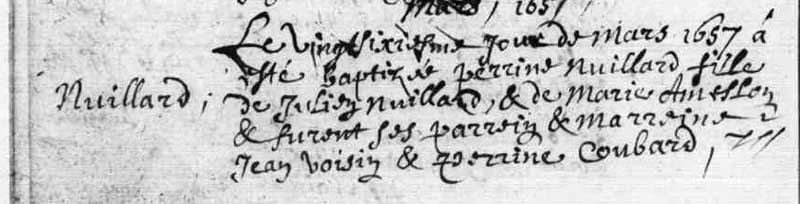 Mars, 1657
Le vingtsixiesme Jour de Mars 1657 á
esté baptizée perrine Nuillard fille
Nuillard; de Julien Nuillard, & de Marie Ameslon
& furent ses parrein & marreine
Jean Voisin & perrine Coubard,